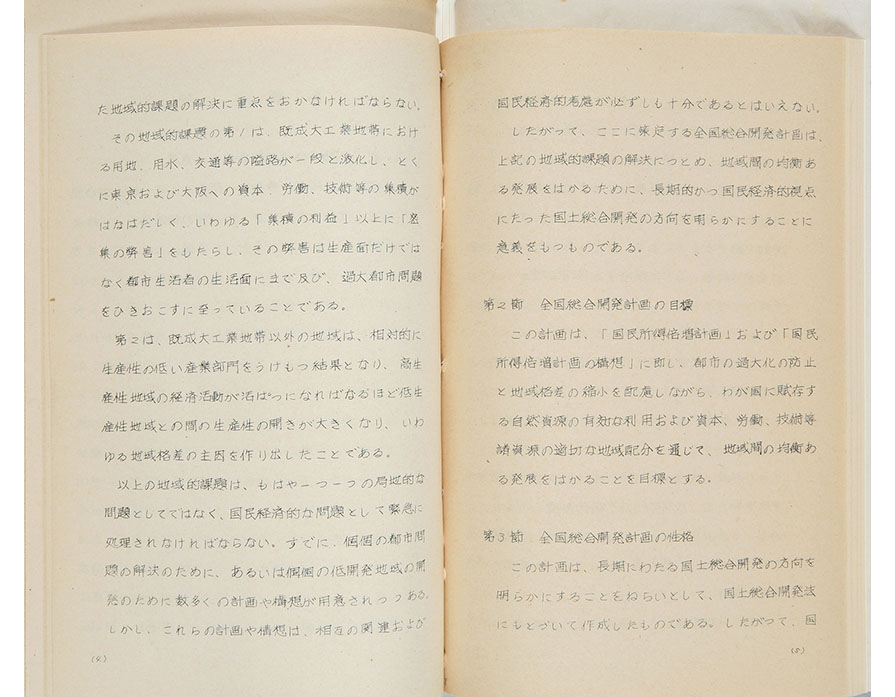 た地域的課題の解決に重点をおかなければならない。
その地域的課題の第1は、既成大工業地帯におけ
る用地、用水、交通等の隘路が一段と激化し、とく
に東京および大阪への資本、労働、技術等の集積が
はなはだしく、いわゆる「集積の利益」以上に「密
集の弊害」をもたらし、その弊害は生産面だけでは
なく都市生活者の生活面にまで及び、過大都市問題
をひきおこすに至っていることである。
第2は、既成大工業地帯以外の地域は、相対的に
生産性の低い産業部門をうけもつ結果となり、高生
産性地域の経済活動が活ぱつになればなるほど低生
産性地域との間の生産性の開きが大きくなり、いわ
ゆる地域格差の主因を作り出したことである。
以上の地域的課題は、もはや一つ一つの局地的な
問題としてではなく、国民経済的な問題として緊急に
処理されなければならない。すでに、個個の都市問
題の解決のために、あるいは個個の低開発地域の開
発のために数多くの計画や構想が用意されつつある。
しかし、これらの計画や構想は、相互の関連および
(4)
国民経済的考慮が必ずしも十分であるとはいえない。
したがって、ここに策定する全国総合開発計画は、
上記の地域的課題の解決につとめ、地域間の均衡あ
る発展をはかるために、長期的かつ国民経済的視点
にたった国土総合開発の方向を明らかにすることに
意義をもつものである。
第2節 全国総合開発計画の目標
この計画は、「国民所得倍増計画」および「国民
所得倍増計画の構想」に即し、都市の過大化の防止
と地域格差の縮小を配慮しながら、わが国に賦存す
る自然資源の有効な利用および資本、労働、技術等
諸資源の適切な地域配分を通じて、地域間の均衡あ
る発展をはかることを目標とする。
第3節 全国総合開発計画の性格
この計画は、長期にわたる国土総合開発の方向を
明らかにすることをねらいとして、国土総合開発法
にもとづいて作成したものである。したがって、国
(5)